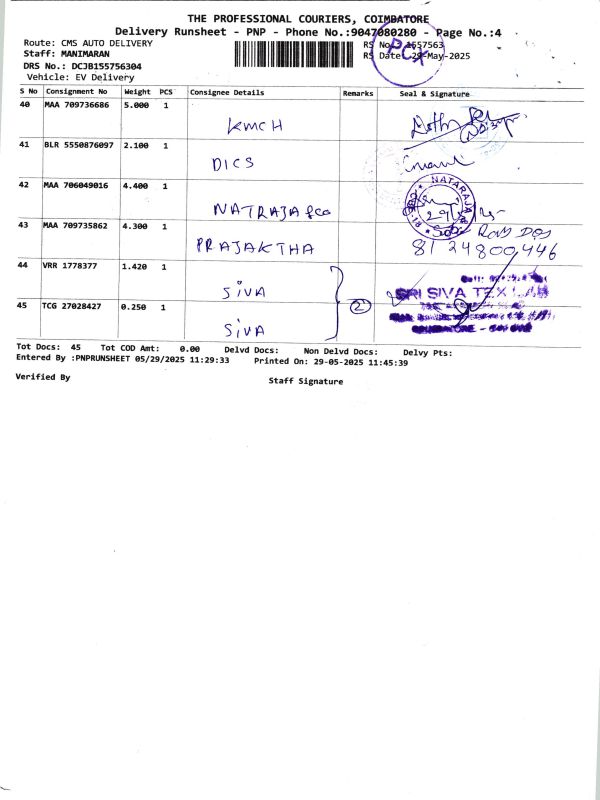 THE PROFESSIONAL COURIERS, COIMBATORE
Delivery Runsheet - PNP - Phone No.:9047080280 - Page No.:4
Route: CMS AUTO DELIVERY
RS No: 1557563
Staff: MANIMARAN
RS Date: 29-May-2025
DRS No.: DCJB155756304
Vehicle: EV Delivery
PCX
S No Consignment No Weight PCS Consignee Details Remarks Seal & Signature
40 MAA 709736686 5.000 1 KMCH
41 BLR 5550876097 2.100 1 DICS
42 MAA 706049016 4.400 1 NATRAJA & co NATARAJA
43 MAA 709735862 4.300 1 PRAJAKTHA 8124800446
44 VRR 1778377 1.420 1 SIVA SRI SIVA TEX
45 TCG 27028427 0.250 1 SIVA
2
Tot Docs: 45 Tot COD Amt: 0.00 Delvd Docs: Non Delvd Docs: Delvy Pts:
Entered By :PNPRUNSHEET 05/29/2025 11:29:33 Printed On: 29-05-2025 11:45:39
Verified By Staff Signature